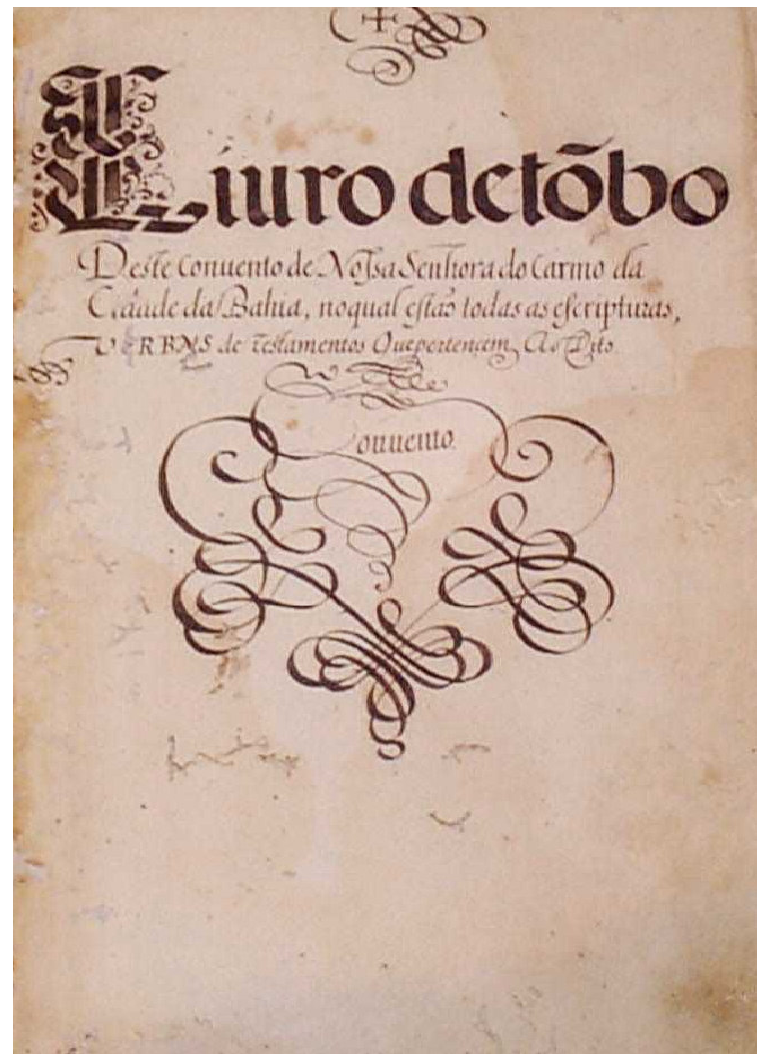 Liuro de tõbo
Deste Conuento de Nossa Senhora do Carmo da
Cidade da Bahia, no qual estaõ todas as escripturas,
VERBAS de testamentos Que pertencem Ao Dito
Conuento.